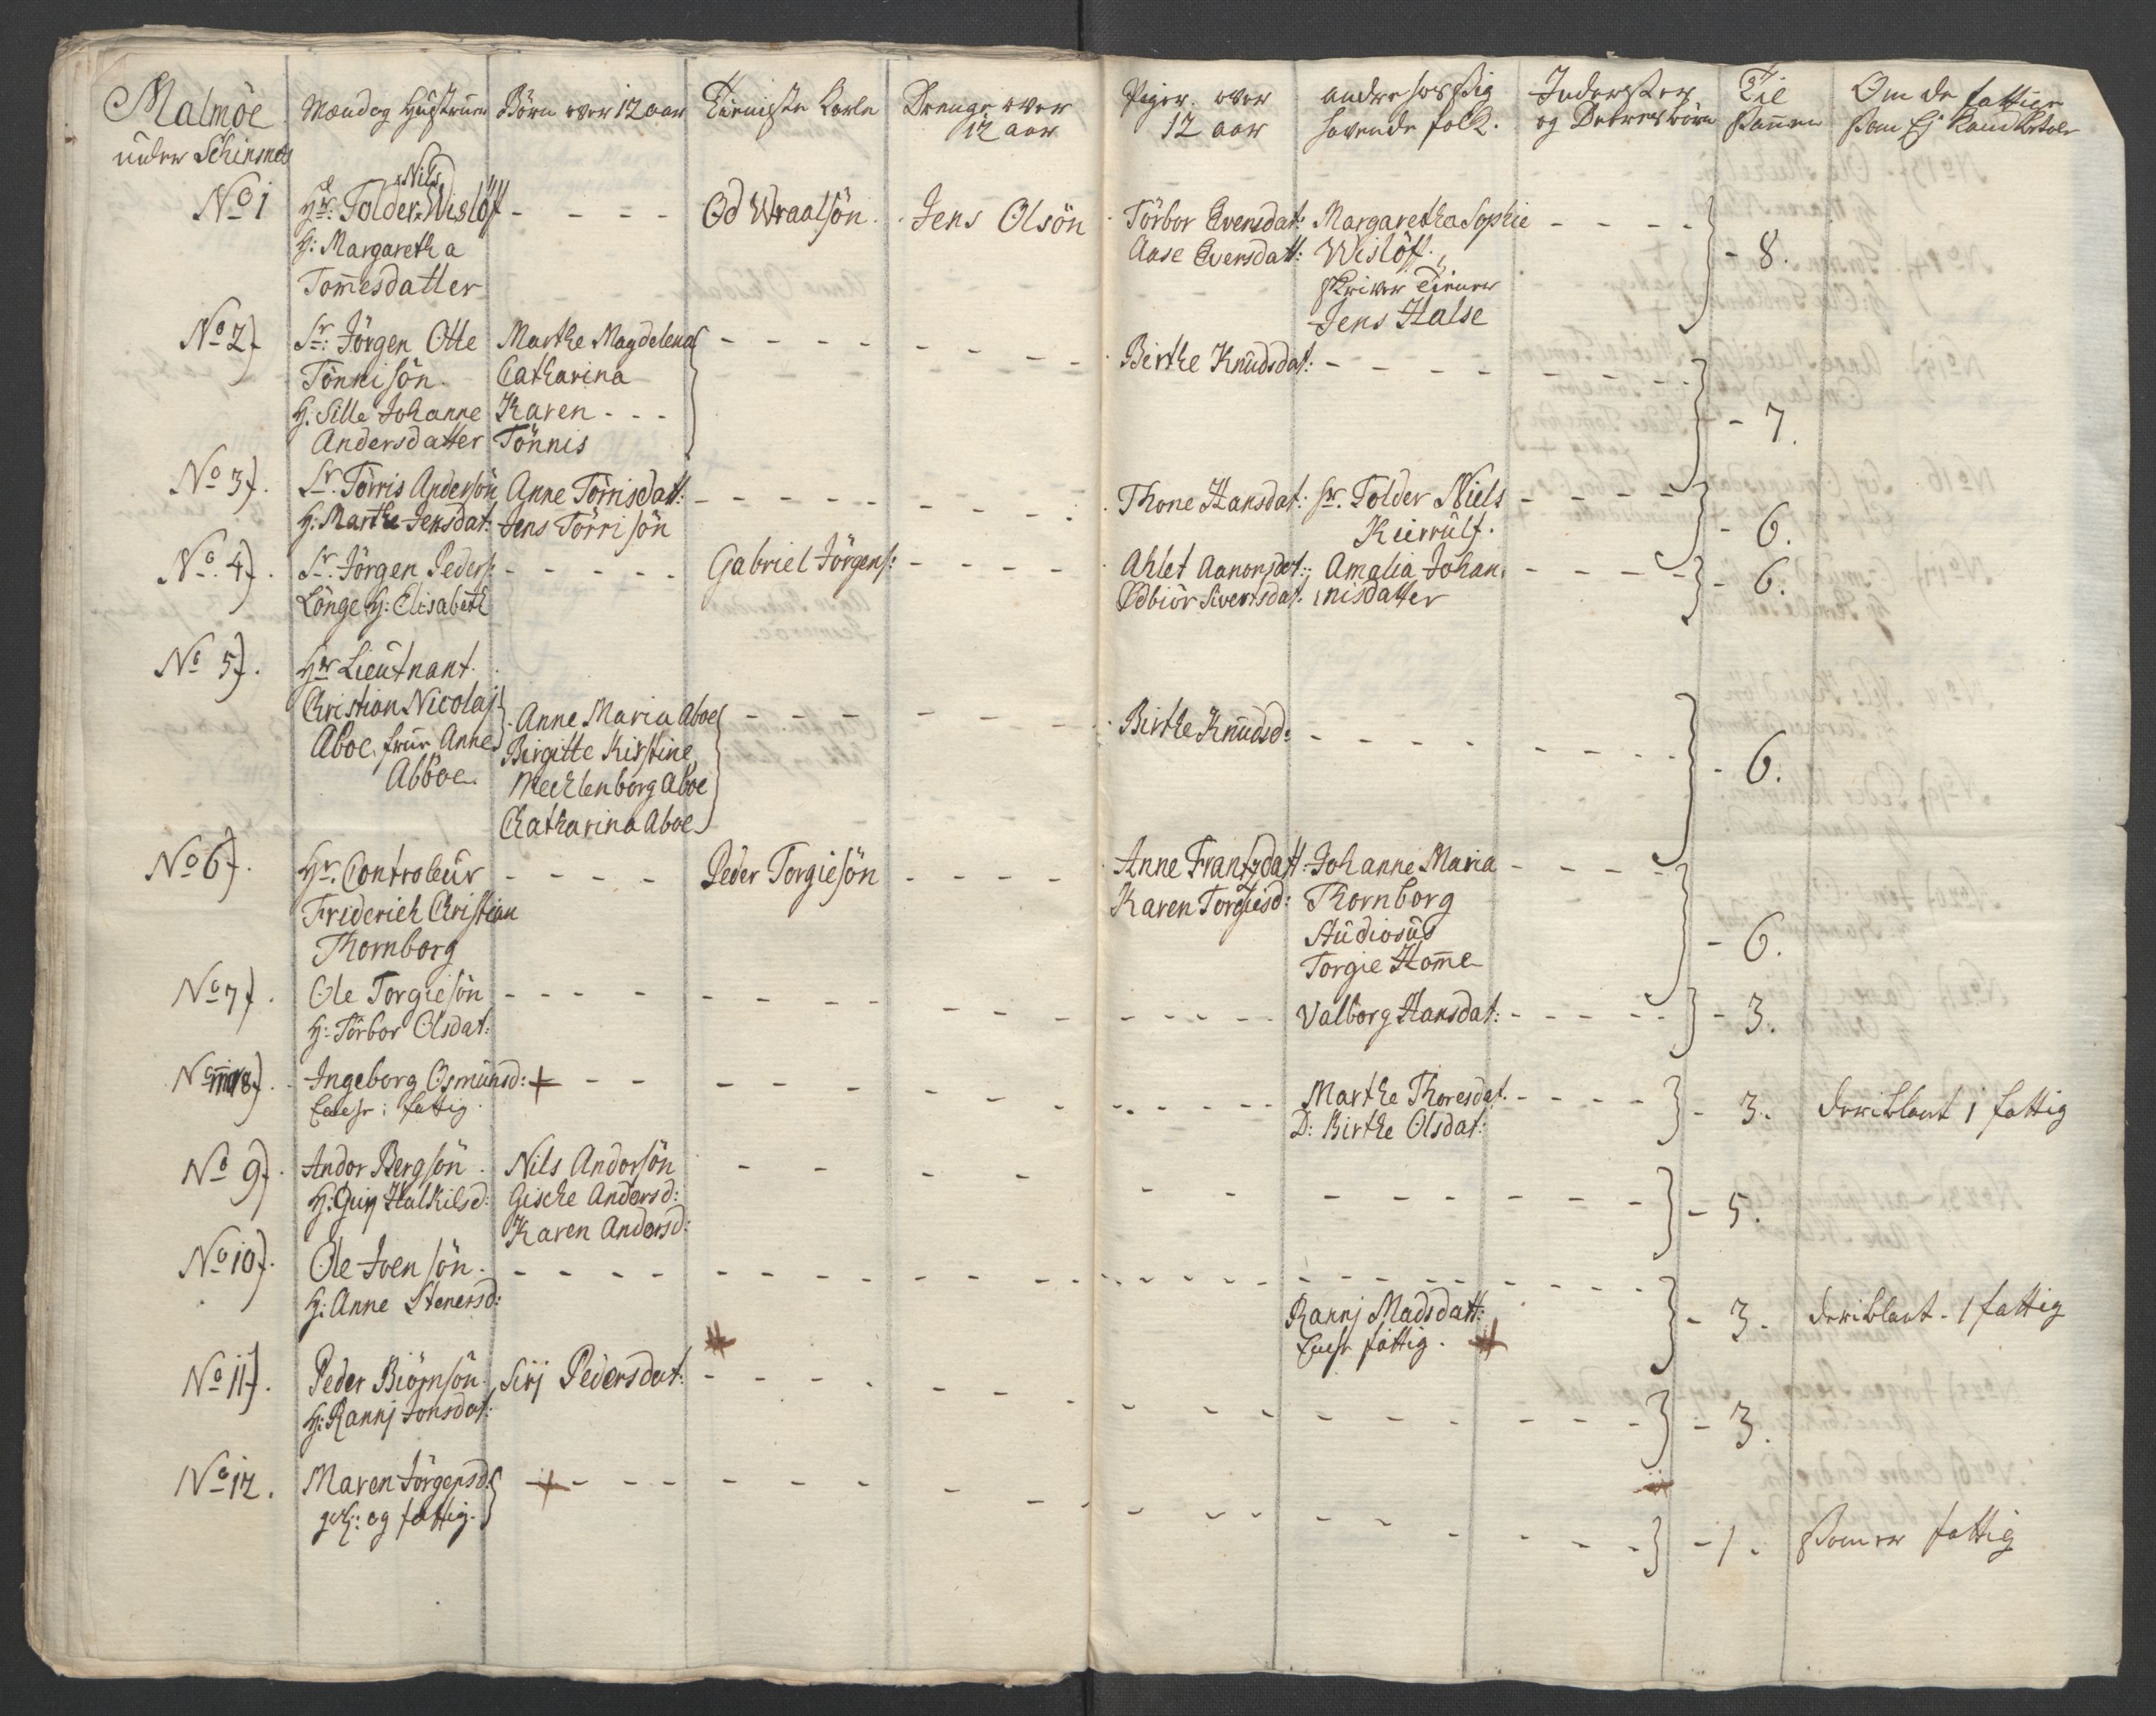 Malmöe
under Schinsnes
Mænd og Hustruer
Börn over 12 aar
Tienniste Karle
Drenge over
12 aar
Piger over
12 aar
andre hos sig
havende folk.
Inderster
og Deres börn
Til
Samen
Om de fattige
som Ej kand betale
No 1
Nils
Hr: Tolder Wislöff - - - -
H: Margaretha
Tom̄esdatter
Od Wraalsön.
Jens Olsön
Törbor Evensdat:
Aase Eversdatt:
Margaretha Sophie
Wislöff.
skriver Tiener
Jens Halse
- 8.
No 2)
Sr: Jörgen Otte
Tönnisön.
H: Sille Johanne
Andersdatter
Marthe Magdelena
Catharina
Karen - - -
Tönnis
Birthe Knudsdat:
- 7.
No 3).
Sr. Törris Andersön
H: Marthe Jensdat:
Anne Törrisdatt:
Jens Törrisön
Thone Hansdat:
Sr. Tolder Niels
Kierrulf.
- 6.
No. 4).
Sr. Jörgen Peders:
Lönge H: Elisabeth
Gabriel Jörgens:
Ahlet Aanonsdat:
Odbiör Siversdat.
Amalia Johan,
nisdatter
- 6.
No 5).
Hr Lieutnant
Christian Nicolaj
Aboe, frue Anne
Abboe.
Anne Maria Aboe
Birgitte Kirstine
Mechlenborg Aboe
Chatharina Aboe
Birthe Knudsd:
- 6.
No 6).
Hr. Controleur
Friderich Christian
Thornborg
Peder Torgiesön
Anne Frantzdatt:
Karen Torgiesd:
Johanne Maria
Thornborg
Studiosus
Torgie Hom̄e
- 6.
No 7).
Ole Torgiesön
H: Törbor Olsdat:
Valborg Hansdat:
- 3.
No 8).
Ingeborg Osmunsd: +
fattig.
Marthe Thoresdat.
D: Birthe Olsdat:
- 3.
deriblant 1 fattig
No 9).
Andor Bergsön.
H: Gurj Halkilsd:
Nils Andorsön
Gische Andersd:
Karen Andersd:
- 5.
No 10).
Ole Joensön.
H: Anne Stenersd:
Rannj Madsdatt:
fattig.
- 3.
deriblant - 1 fattig
No 11).
Peder Biörnsön.
H: Rannj Jonsdat:
Sirj Pedersdat:
- 3.
No 12.
Maren Jörgensd:
og fattig.
+
- 1.
som er fattig